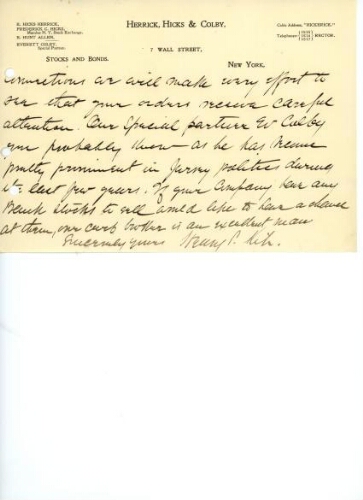 HERRICK, HICKS & COLBY.
E. HICKS HERRICK,
FREDERICK C. HICKS,
Member N. Y. Stock Exchange.
R. HUNT ALLEN.
EVERETT COLBY
Special Partner.
Cable Address, "HICKERICK."
Telephones RECTOR.
7 WALL STREET,
STOCKS AND BONDS.
NEW YORK.
connections we will make every effort to
see that your orders receive careful
attention. Our Special partner Ev Colby
you probably know as he has become
pretty prominent in Jersey politics during
the last few years. If your Company have any
Bank stocks to sell would like to have a chance
at them, our curb broker is an excellent man
Sincerely yours